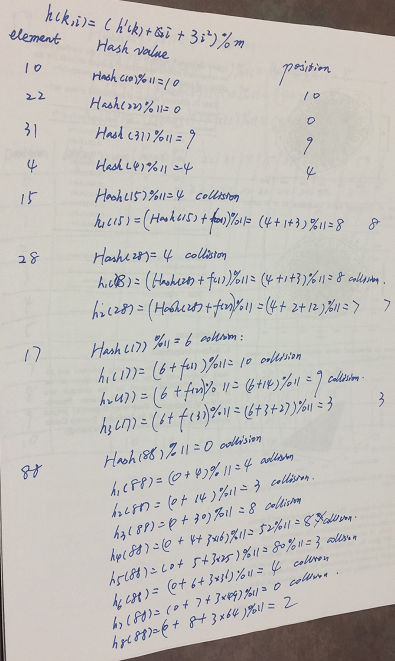 h(k,i) = (h'(k) + C₁i + 3i²) % m
element Hash value position
10 Hash(10)%11=10 10
22 Hash(22)%11=0 0
31 Hash(31)%11=9 9
4 Hash(4)%11=4 4
15 Hash(15)%11=4 collision
h₁(15)=(Hash(15)+f(1))%11=(4+1+3)%11=8 8
28 Hash(28)=4 collision
h₁(28)=(Hash(28)+f(1))%11=(4+1+3)%11=8 collision.
h₂(28)=(Hash(28)+f(2))%11=(4+2+12)%11=7 7
17 Hash(17)%11=6 collision:
h₁(17)=(6+f(1))%11=10 collision
h₂(17)=(6+f(2))%11=(6+14)%11=9 collision.
h₃(17)=(6+f(3))%11=(6+3+27)%11=3 3
88 Hash(88)%11=0 collision
h₁(88)=(0+4)%11=4 collision
h₂(88)=(0+14)%11=3 collision.
h₃(88)=(0+30)%11=8 collision
h₄(88)=(0+4+3×16)%11=52%11=8 collision.
h₅(88)=(0+5+3×25)%11=80%11=3 collision
h₆(88)=(0+6+3×36)%11=4 collision
h₇(88)=(0+7+3×49)%11=0 collision.
h₈(88)=(0+8+3×64)%11=2